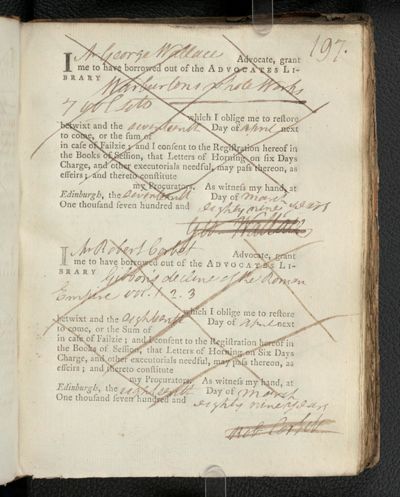 197.
I Mr George Wallace Advocate, grant
me to have borrowed out of the ADVOCATES LI-
BRARY Warburton's whole Works
7 vol. 4to
which I oblige me to restore
betwixt and the seventeenth Day of April next
to come, or the sum of
in case of Failzie; and I consent to the Registration hereof in
the Books of Session, that Letters of Horning on six Days
Charge, and other executorials needful, may pass thereon, as
effeirs; and thereto constitute
my Procurators. As witness my hand, at
Edinburgh, the seventeenth Day of March
One thousand seven hundred and eighty nine years
Geo. Wallace
I Mr Robert Corbet Advocate, grant
me to have borrowed out of the ADVOCATES LI-
BRARY Gibbon's decline of the Roman
Empire vol. 1. 2. 3
which I oblige me to restore
betwixt and the eighteenth Day of April next
to come, or the Sum of
in case of Failzie; and I consent to the Registration hereof in
the Books of Session, that Letters of Horning on Six Days
Charge, and other executorials needful, may pass thereon, as
effeirs; and thereto constitute
my Procurators. As witness my hand, at
Edinburgh, the eighteenth Day of March
One thousand seven hundred and eighty nine years
Rob Corbet